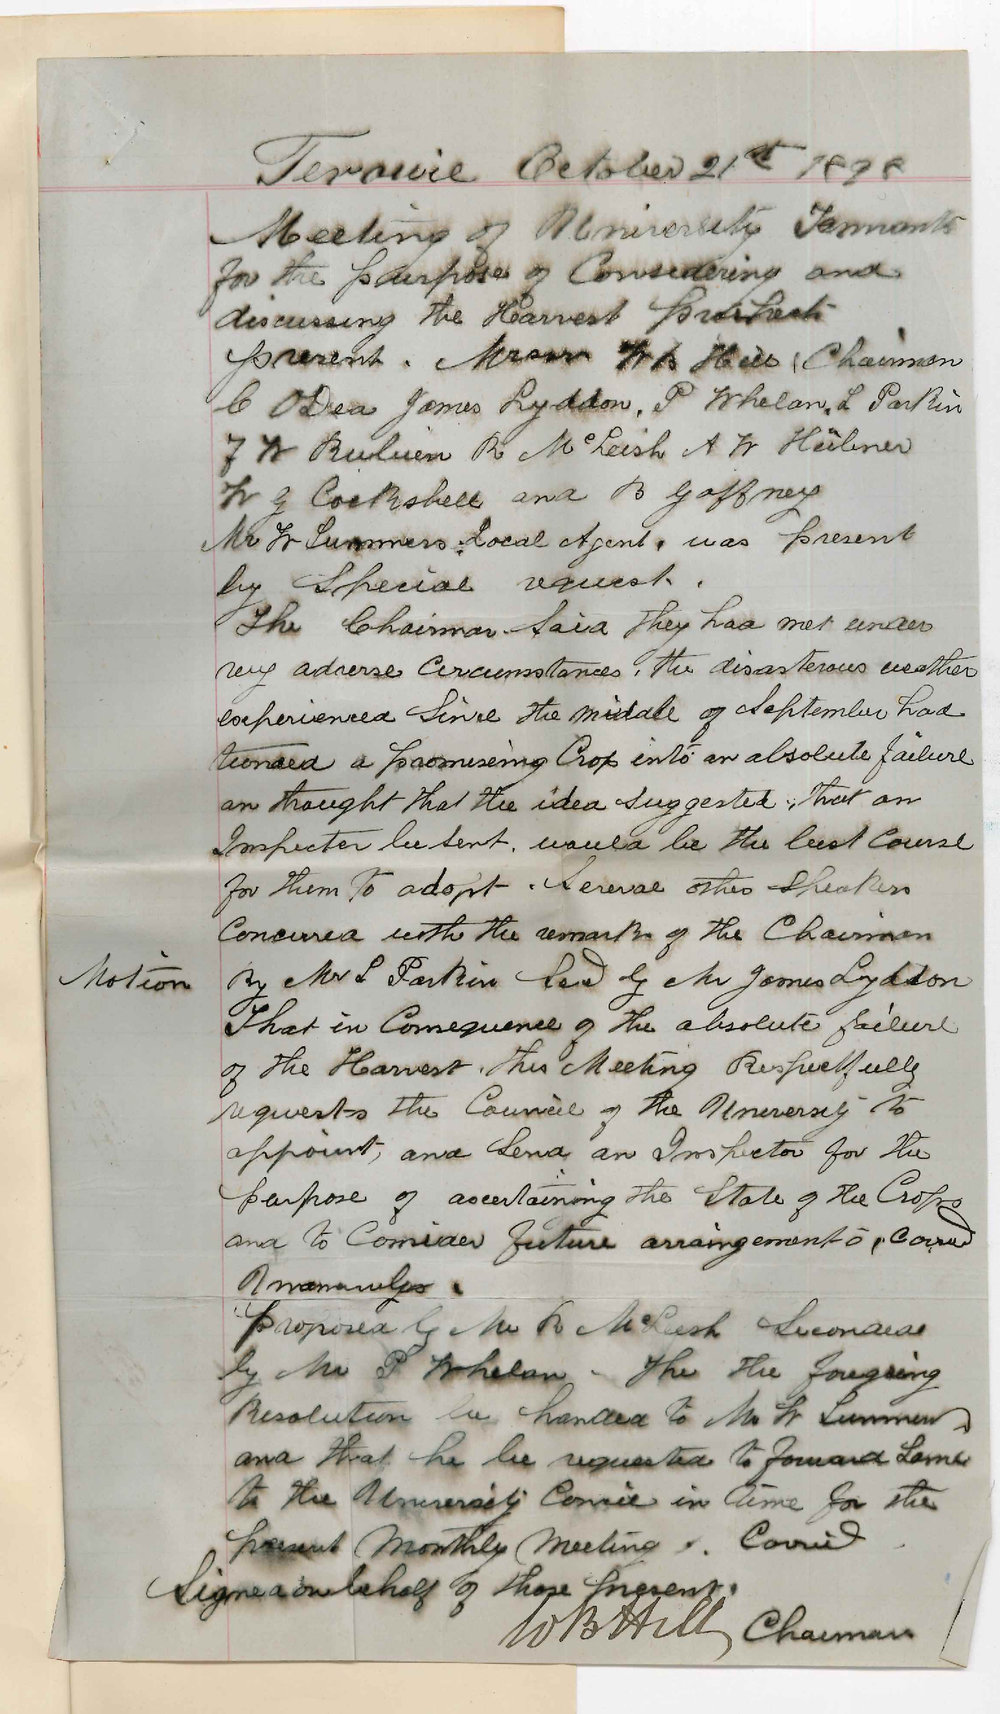 Terowie October 21st 1898
Meeting of University Tennants
for the purpose of Considering and
discussing the Harvest prospects
present. Messrs W B Hill, Chairman
C O'Dea James Lyddon, P Whelan, L Parkin
F W R. McLeish A W Hübner
W G Cockshell and B Gaffney
Mr W Summers, Local Agent, was present
by Special request.
The Chairman Said they had met under
very adverse Circumstances, the disasterous weather
experienced Since the middle of September had
turned a promiseing Crop into an absolute failure
an thought that the idea suggested, that an
Inspecter be sent, would be the best Course
for them to adopt. Several other Speakers
Concurred with the remarks of the Chairman
Motion By Mr L Parkin Secd by Mr James Lyddon
That in Consequence of the absolute failure
of the Harvest, this Meeting Respectfully
requests the Council of the University to
appoint, and Send an Inspector for the
purpose of ascertaining the State of the Crops
and to Consider future arraingements, Carried
Unanimously.
Proposed by Mr R McLeish Seconded
by Mr P Whelan - The the foregoing
Resolution be handed to Mr W Summers
and that he be requested to forward Same
to the University Council in time for the
present Monthly Meeting. Carried
Signed on behalf of those present.
W B Hill, Chairman